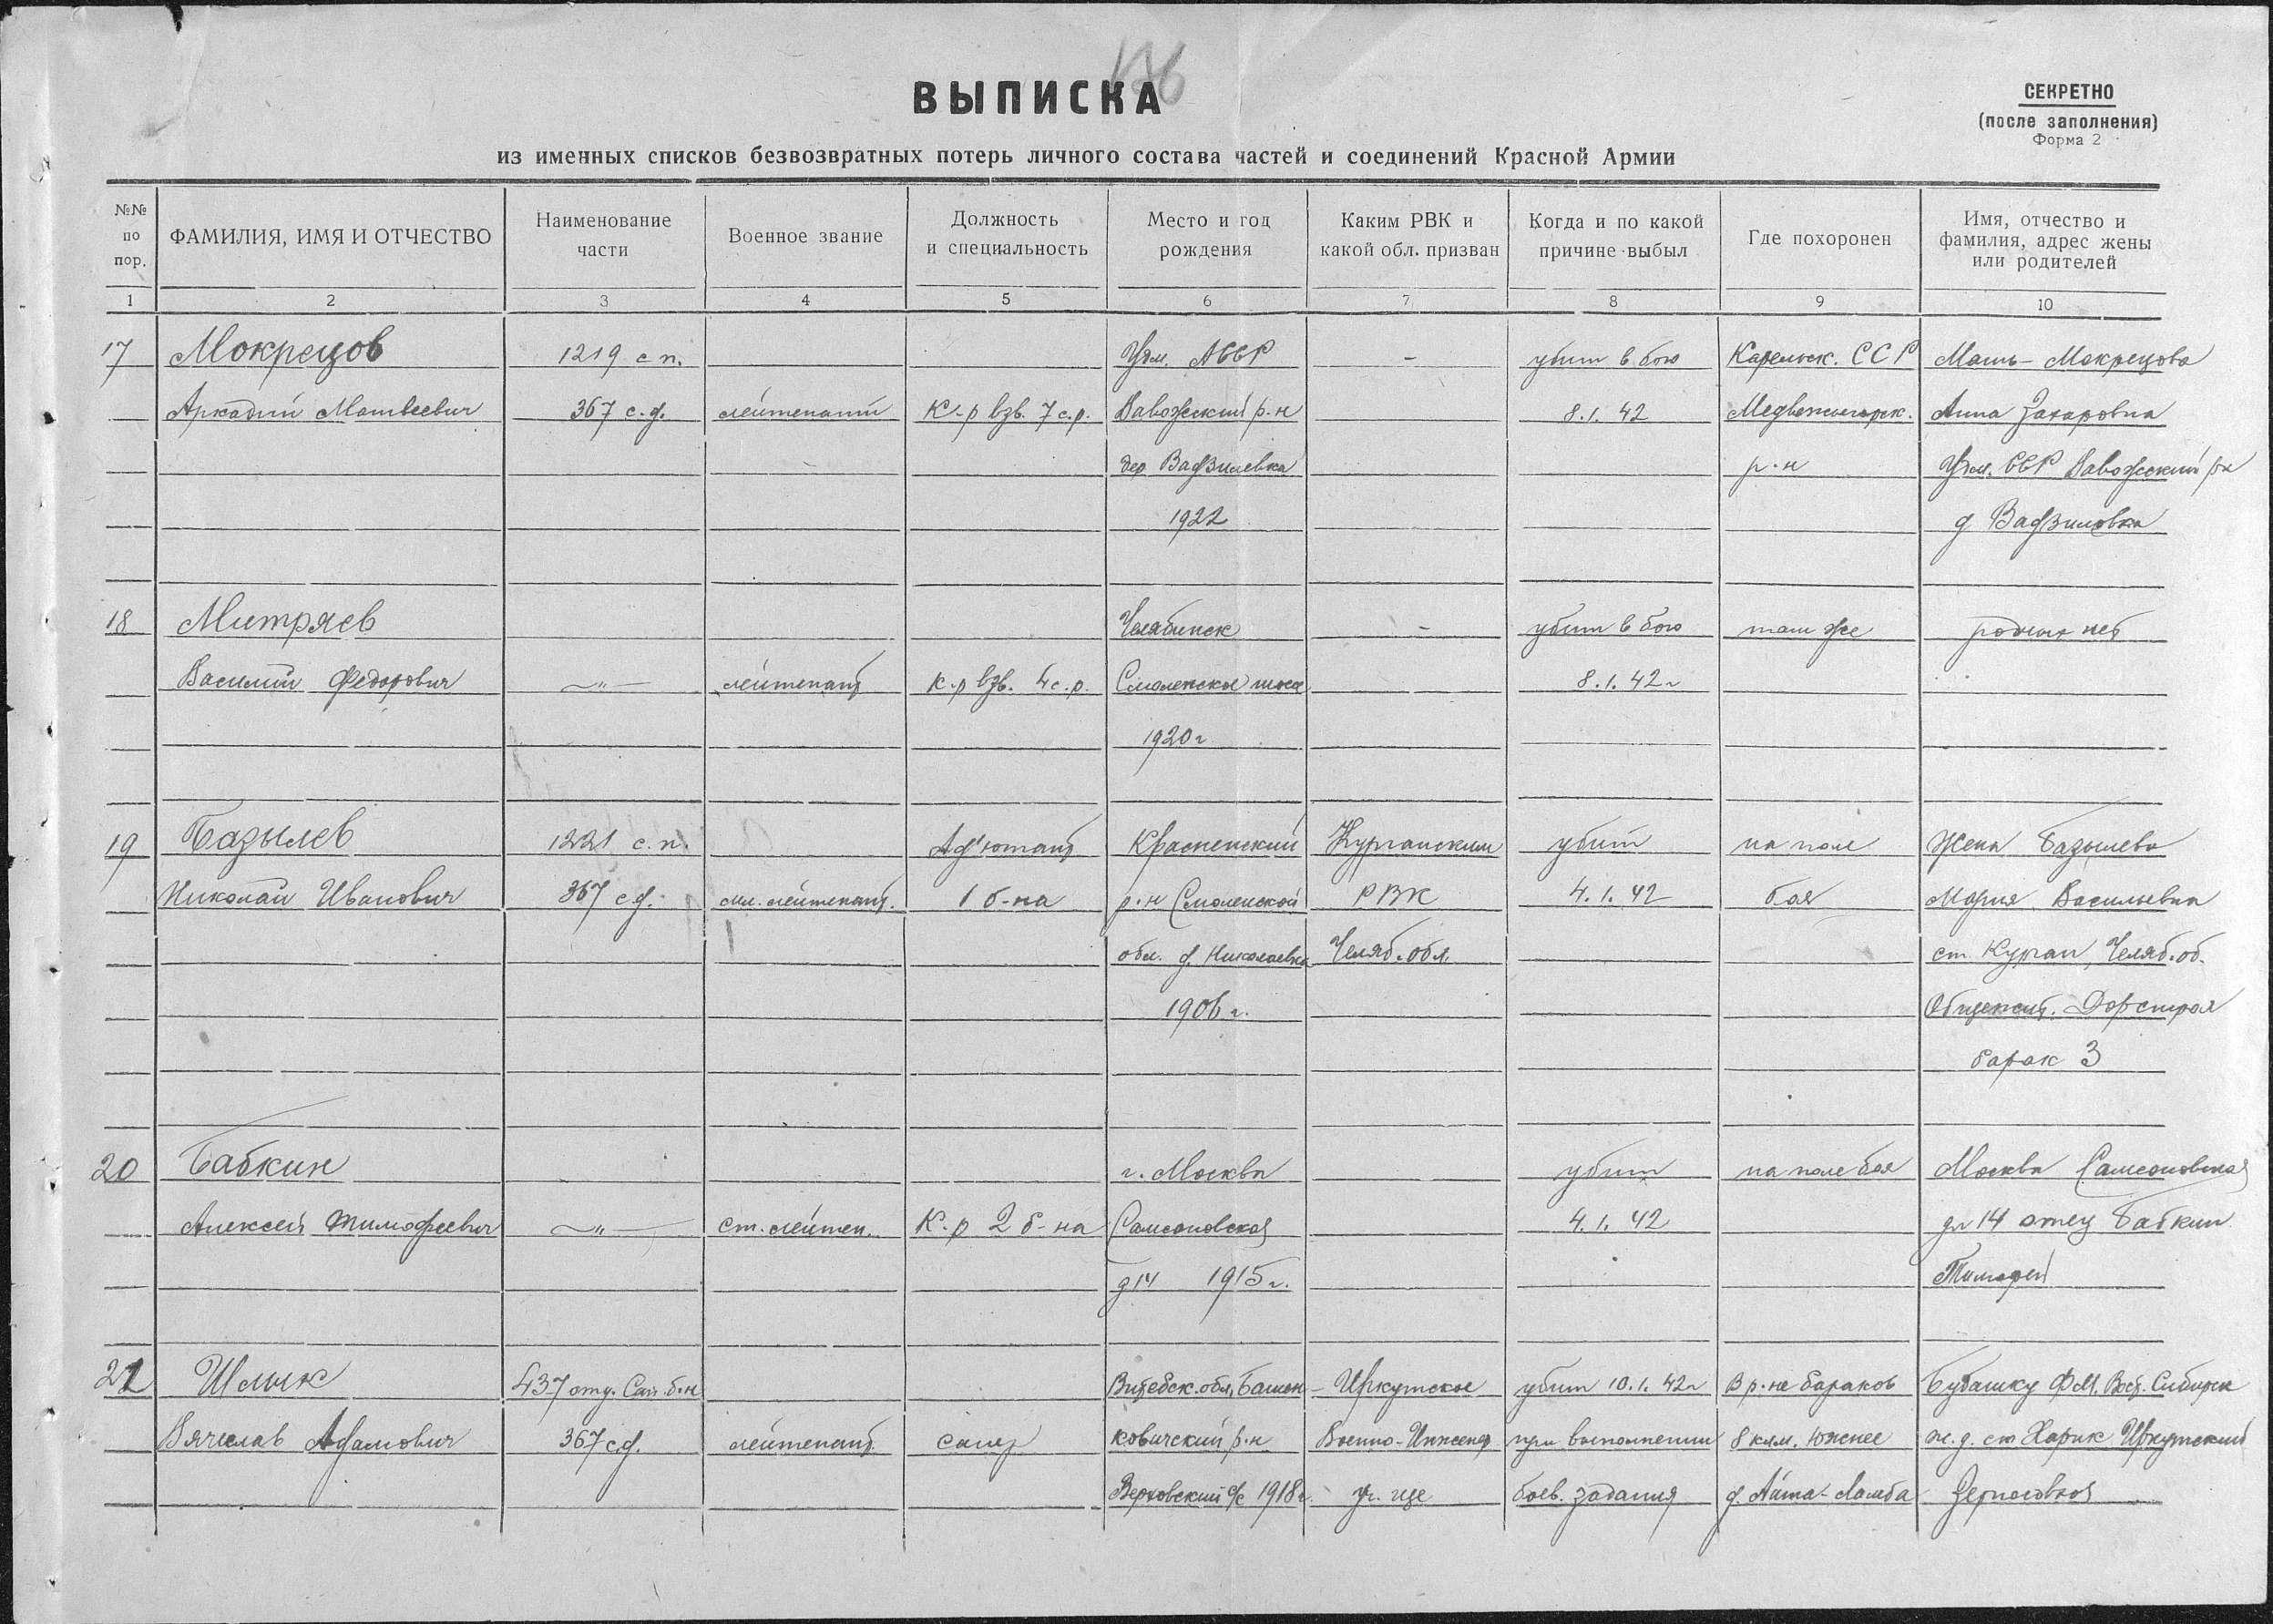 176
ВЫПИСКА
СЕКРЕТНО
(после заполнения)
Форма 2
из именных списков безвозвратных потерь личного состава частей и соединений Красной Армии
№№ по пор. ФАМИЛИЯ, ИМЯ И ОТЧЕСТВО Наименование части Военное звание Должность и специальность Место и год рождения Каким РВК и какой обл. призван Когда и по какой причине выбыл Где похоронен Имя, отчество и фамилия, адрес жены или родителей
1 2 3 4 5 6 7 8 9 10
17 Мокрецов 1219 с п. Удм. АССР - убит в бою Карельск. ССР Мать - Мокрецова
Аркадий Матвеевич 367 с.д. лейтенант К-р взв. 7 с.р. Вавожский р-н 8.1.42 Медвежьегорск. Анна Захаровна
дер Вадзилевка р-н Удм. ССР Вавожский рн
1922 д Вадзиловка
18 Митряев Челябинск - убит в бою там же родных нет
Василий Федорович —"— лейтенант к-р взв. 4 с.р. Смоленское шоссе 8.1.42 г
1920 г
19 Базылев 1221 с.п. Адъютант Красненский Курганским убит на поле Жена Базылева
Николай Иванович 367 сд. мл. лейтенант. 1 б-на р-н Смоленской РВК 4.1.42 боя Мария Васильевна
обл. д. Николаевка Челяб. обл. ст. Курган, Челяб. об.
1906 г. Общежит. Дорстроя
барак 3
20 Бабкин г. Москва убит на поле боя Москва Самсоновская
Алексей Тимофеевич —"— ст. лейтен. К-р 2 б-на Самсоновская 4.1.42 14 отец Бабкин
д 14 1915 г. Тимофей
21 Шлык 437 отд. Сап. б-н Витебск. обл, Башен- Иркутское убит 10.1.42 г В р-не бараков Бубашку Ф.М. Вост. Сибирск
Вячеслав Адамович 367 сд. лейтенант сапер ковичский р-н Военно-Инженер при выполнении 8 клм. южнее ж.д. ст Харик Иркутский
Верховский с/с 1918 г. уч-ще боев. задания д. Айта-Ламба